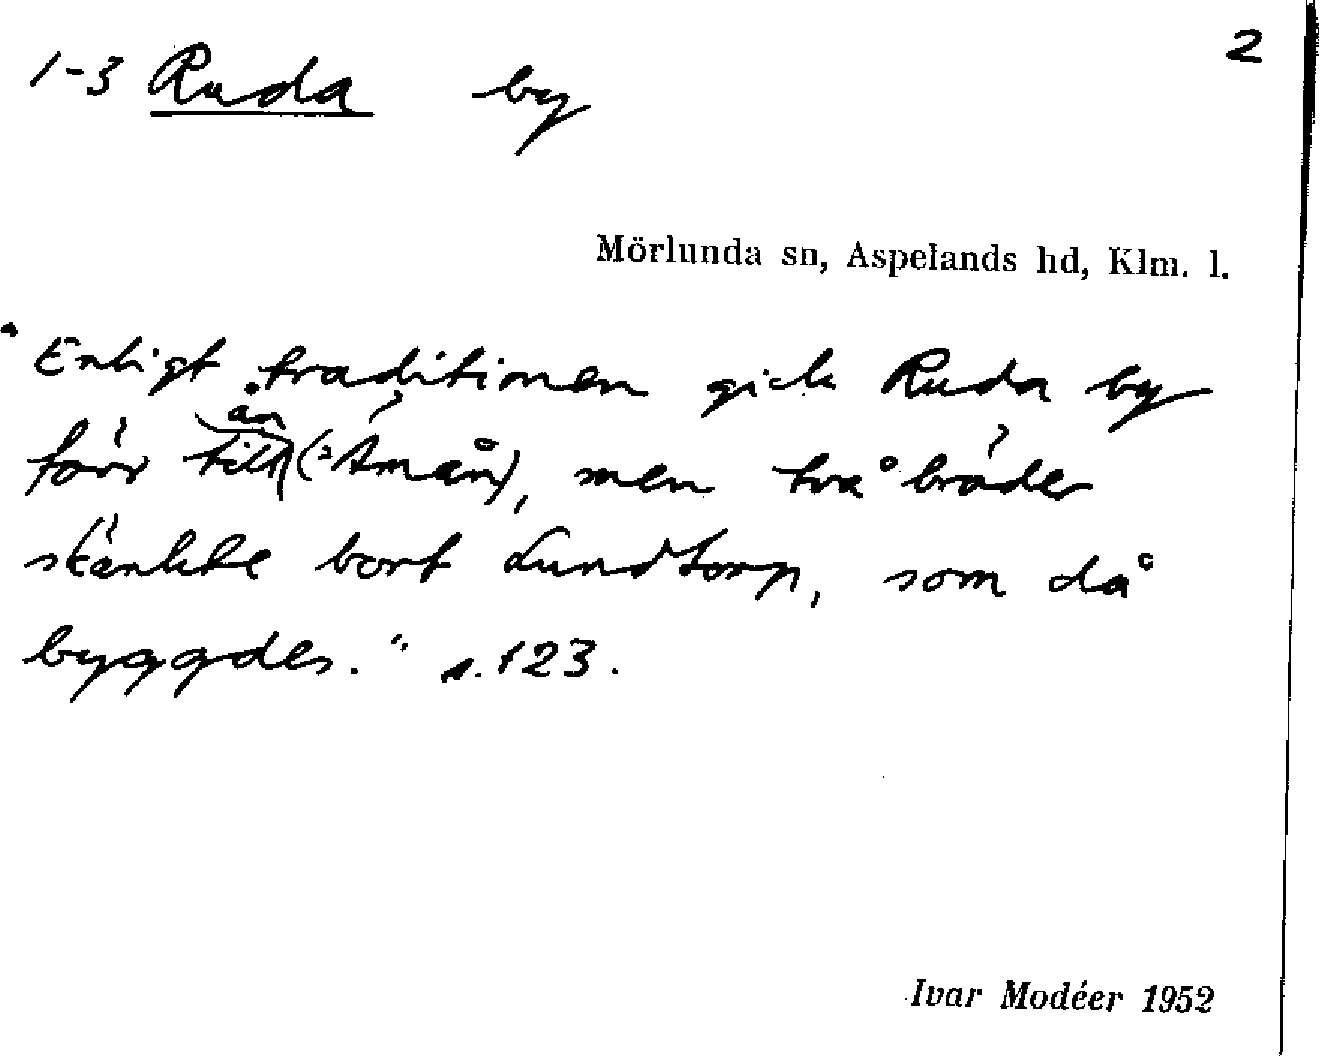 2
1-3 Ruda by
Mörlunda sn, Aspelands hd, Klm. l.
"Enligt traditionen gick Ruda by
förr till ån (= Åmån), men två bröder
skänkte bort Lundtorp, som då
byggdes." s. 123.
Ivar Modéer 1952